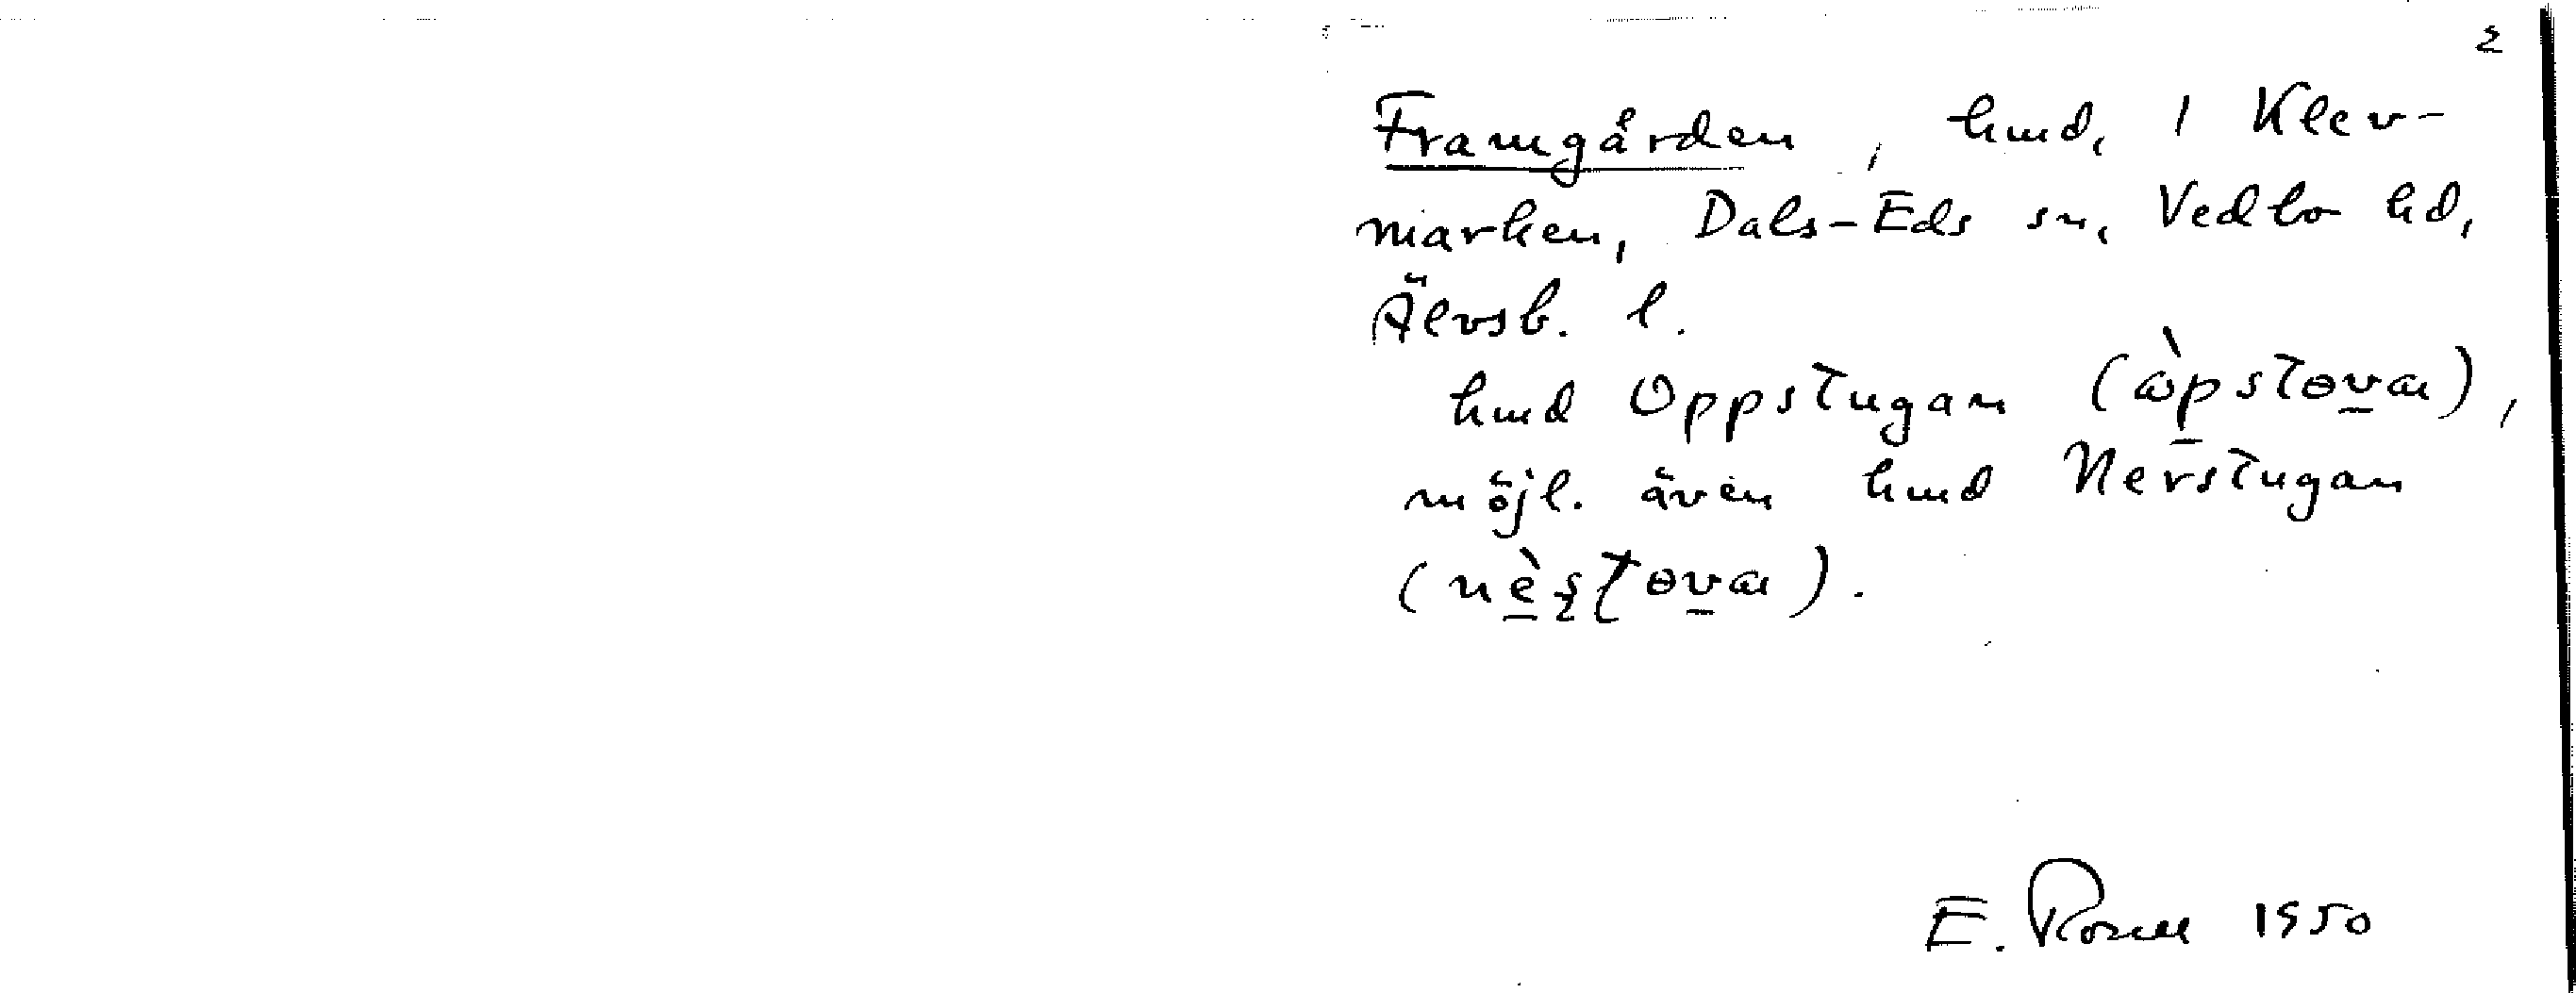 2
Framgården, hmd, 1 Klev-
marken, Dals-Eds sn, Vedbo hd,
Älvsb. l.
hmd Oppstugan (ɷ̀pstɵvaɩ),
möjl. även hmd Nerstugan
(nèʂʈɵvaɩ).
E. 1950